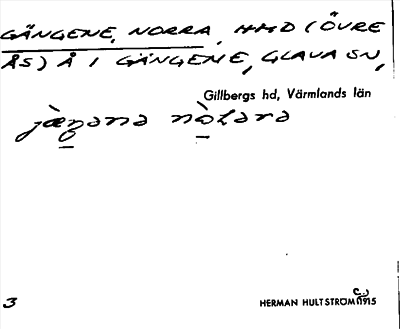 GÄNGENE, NORRA, HMD (ÖVRE
ÅS) Å I GÄNGENE, GLAVA SN,
Gillbergs hd, Värmlands län
jæ̀ŋənə nò̱Lərə
3
HERMAN HULTSTRÖM 1915